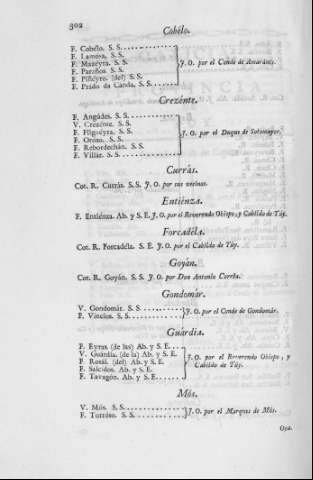 302
Cobélo.
F. Cobélo. S. S.
F. Lamosa. S. S.
F. Mazeyra. S. S.
F. Paraños. S. S.
F. Piñéyro. (del) S. S.
F. Prado da Canda. S. S.
J. O. por el Conde de Amarante.
Crezénte.
F. Angúdes. S. S.
V. Crezénte. S. S.
F. Filgueyra. S. S.
F. Orôso. S. S.
F. Rebordechán. S. S.
F. Villar. S. S.
J. O. por el Duque de Sotomayor.
Currás.
Cot. R. Currás. S. S. J. O. por sus vecinos.
Entiénza.
F. Entiénza. Ab. y S. E. J. O. por el Reverendo Obispo, y Cabildo de Túy.
Forcadéla.
Cot. R. Forcadéla. S. E. J. O. por el Cabildo de Túy.
Goyán.
Cot. R. Goyán. S. S. J. O. por Don Antonio Corrêa.
Gondomár.
V. Gondomár. S. S.
F. Vincios. S. S.
J. O. por el Conde de Gondomár.
Guárdia.
F. Eyras. (de las) Ab. y S. E.
V. Guárdia. (de la) Ab. y S. E.
F. Rosál. (del) Ab. y S. E.
F. Salcidos. Ab. y S. E.
F. Tavagón. Ab. y S. E.
J. O. por el Reverendo Obispo, y
Cabildo de Túy.
Môs.
V. Môs. S. S.
F. Torróso. S. S.
J. O. por el Marques de Môs.
Oya.